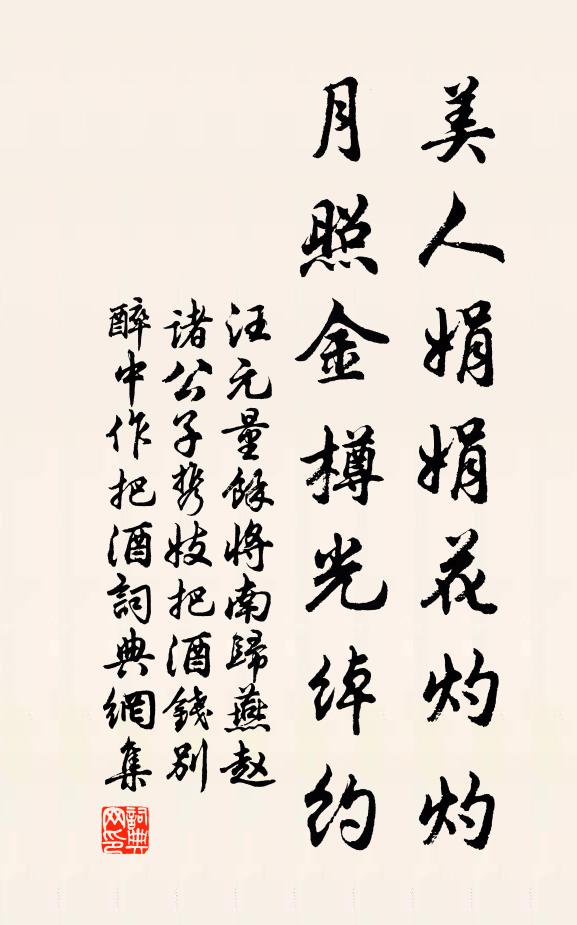 美人娟娟花灼灼
月照金樽光绰约
汪元量餘将南歸燕赵
諸公子携妓把酒錢别
醉中作把酒詞典網集
詞典网印